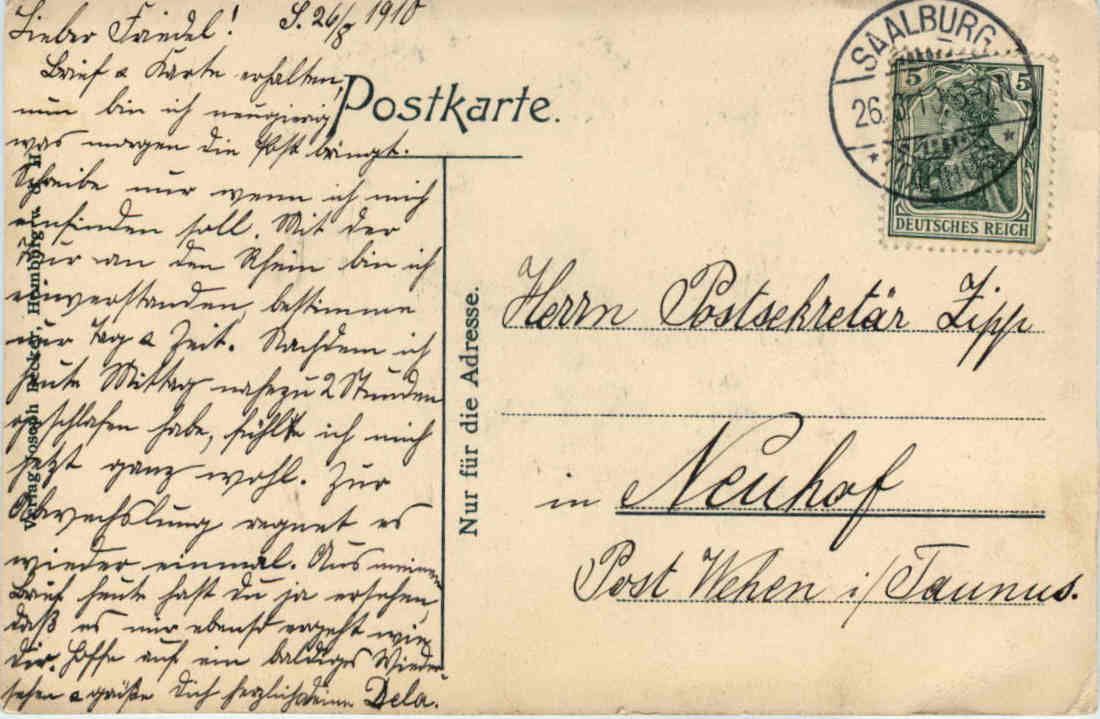 Lieber Friedel! S. 26/8 1910
Brief & Karte erhalten,
nun bin ich neugierig
was morgen die Post bringt.
Schreibe nur wenn ich mich
einfinden soll. Mit der
Tour an den Rhein bin ich
einverstanden, bestimme
nur Tag & Zeit. Nachdem ich
heute Mittag nahezu 2 Stunden
geschlafen habe, fühle ich mich
jetzt ganz wohl. Zur
Abwechslung regnet es
wieder einmal. Aus meinem
Brief heute hast du ja ersehen,
daß es mir ebenso ergeht wie
dir. Hoffe auf ein baldiges Wieder-
sehen & grüße dich herzlich deine Dela.
Postkarte.
Verlag Joseph Becker, Homburg v. d. H.
Nur für die Adresse.
SAALBURG
26.
5 5
DEUTSCHES REICH
Herrn Postsekretär Zipp
in Neuhof
Post Wehen i/Taunus.